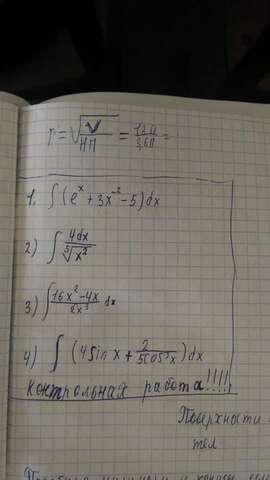 1. ∫(eˣ + 3x⁻² - 5)dx
2) ∫ 4dx / ⁵√x²
3) ∫ 16x² - 4x / 2x³ dx
4) ∫ (4sin x + 2 / 5cos²x)dx
контрольная работа!!!!
Поверхности
тел